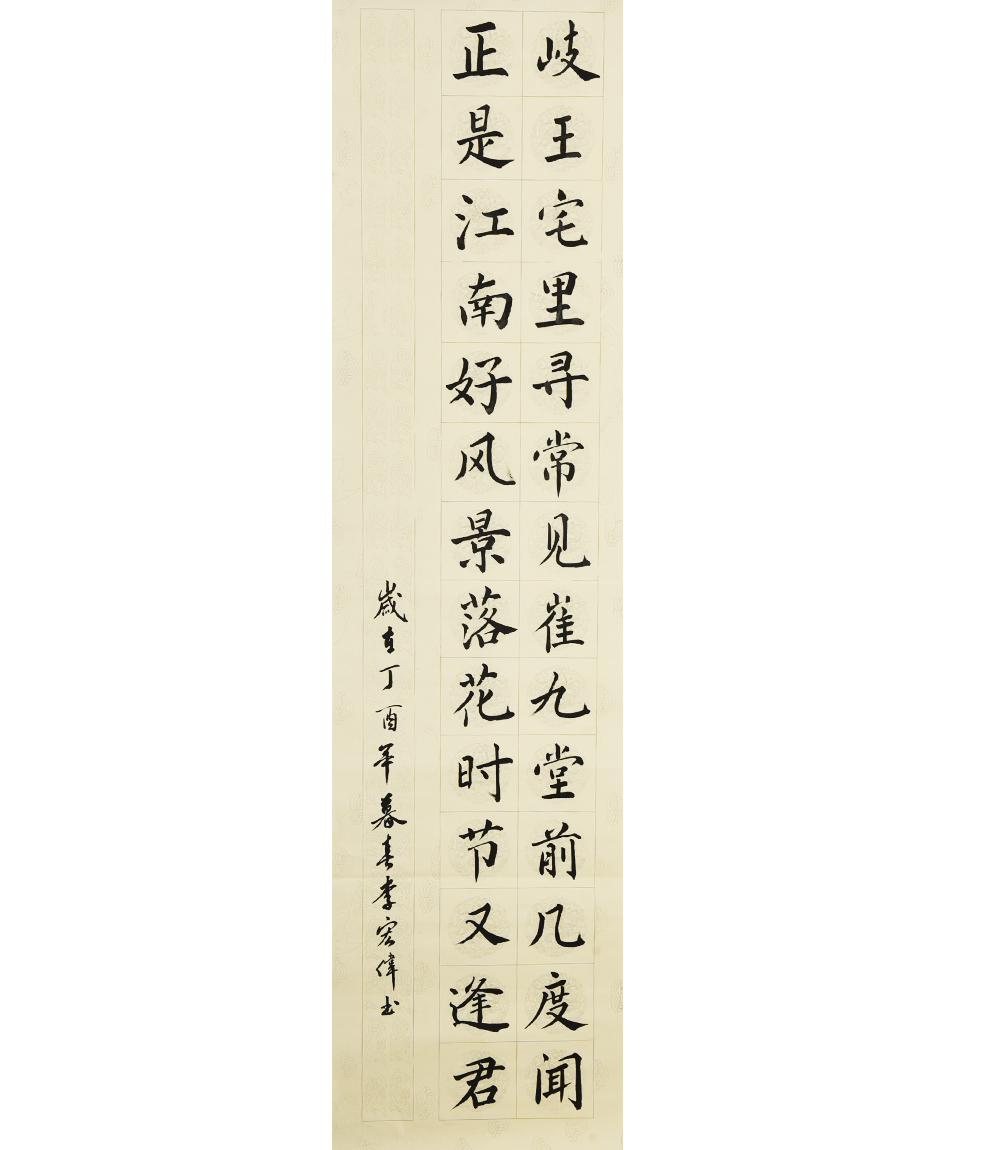 岐王宅里寻常见崔九堂前几度闻
正是江南好风景落花时节又逢君
歲在丁酉年暮春李宏偉书